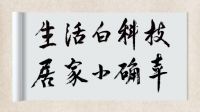 生活白科技
居家小确幸